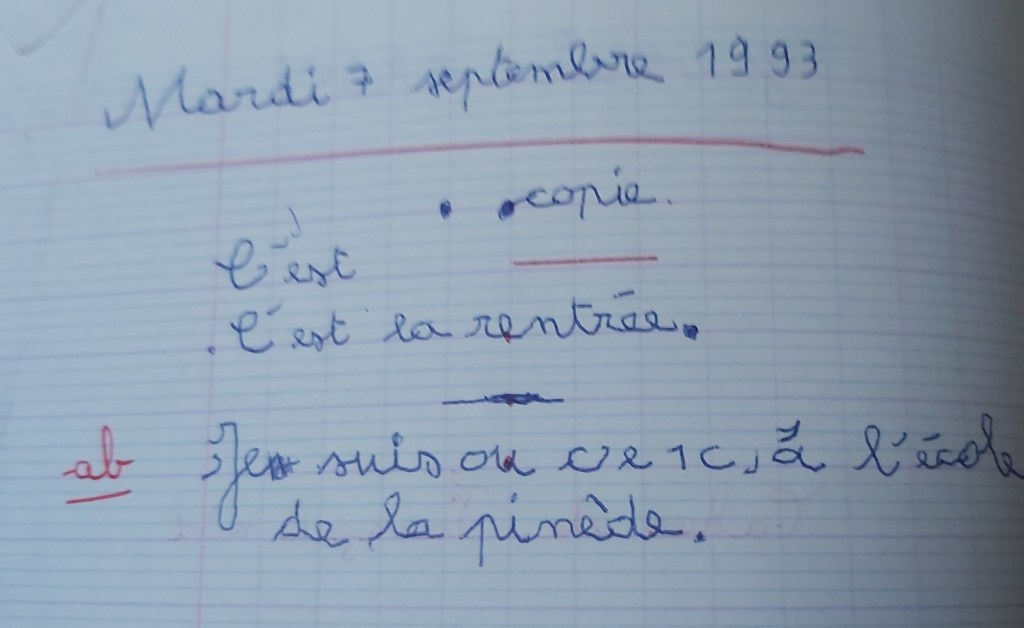 Mardi 7 septembre 1993
copie.
C'est
C'est la rentrée.
ab Je suis ou ce 1c, à l'école
de la pinède.